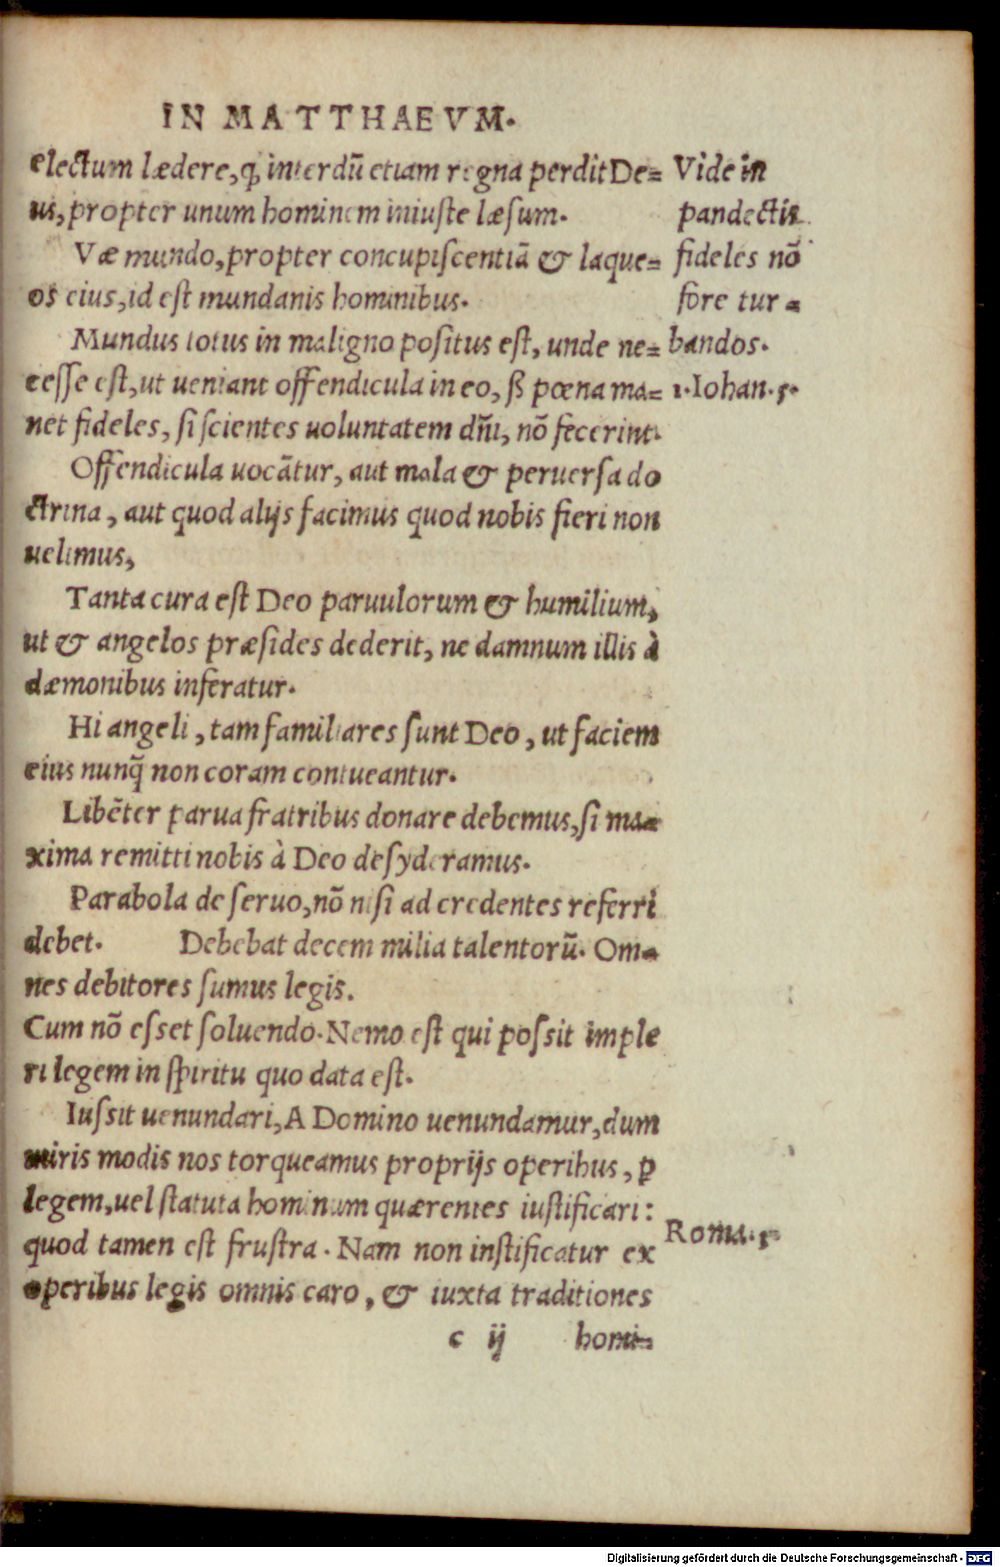 IN MATTHAEVM.
electum lædere, ꝙ interdū etiam regna perdit De=
us, propter unum hominem iniuste læsum.
Væ mundo, propter concupiscentiā & laque=
os eius, id est mundanis hominibus.
Mundus totus in maligno positus est, unde ne=
cesse est, ut ueniant offendicula in eo, ß pœna ma=
net fideles, si scientes uoluntatem dñi, nō fecerint.
Offendicula uocātur, aut mala & peruersa do
ctrina, aut quod alijs facimus quod nobis fieri non
uelimus,
Tanta cura est Deo paruulorum & humilium,
ut & angelos præsides dederit, ne damnum illis à
dæmonibus inferatur.
Hi angeli, tam familiares sunt Deo, ut faciem
eius nunq̄ non coram contueantur.
Libēter parua fratribus donare debemus, si ma=
xima remitti nobis à Deo desyderamus.
Parabola de seruo, nō nisi ad credentes referri
debet. Debebat decem milia talentorū. Om=
nes debitores sumus legis.
Cum nō esset soluendo. Nemo est qui possit imple
ri legem in spiritu quo data est.
Iussit uenundari, A Domino uenundamur, dum
miris modis nos torqueamus proprijs operibus, ꝑ
legem, uel statuta hominum quærentes iustificari:
quod tamen est frustra. Nam non iustificatur ex
operibus legis omnis caro, & iuxta traditiones
c ij homi=
Vide in
pandectis
fideles nō
fore tur=
bandos.
1. Iohan. 5.
Roma. 3.
Digitalisierung gefördert durch die Deutsche Forschungsgemeinschaft - DFG